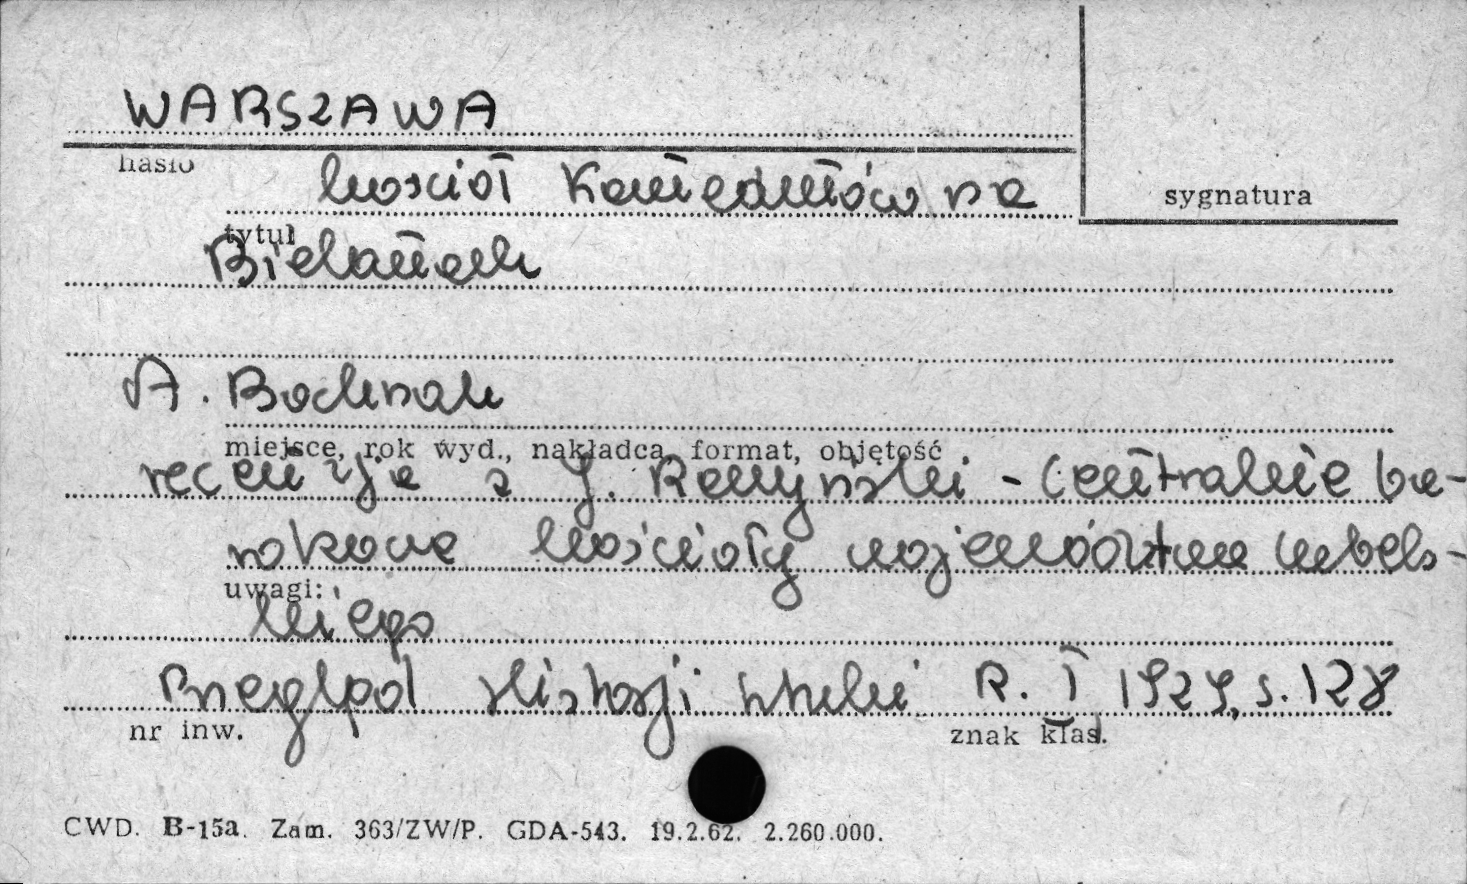 WARSZAWA
hasło
kościół Kamedułów na
sygnatura
tytuł
Bielanach
A. Bochnak
miejsce, rok wyd., nakładca, format, objętość
recenzja z J. Raczyński - Centralne ba-
rokowe kościoły województwa lubels-
uwagi:
kiego
Przegląd Historji Sztuki R. I 1929, s. 128
nr inw.
znak klas.
CWD. B-15a. Zam. 363/ZW/P. GDA-543. 19.2.62. 2.260.000.